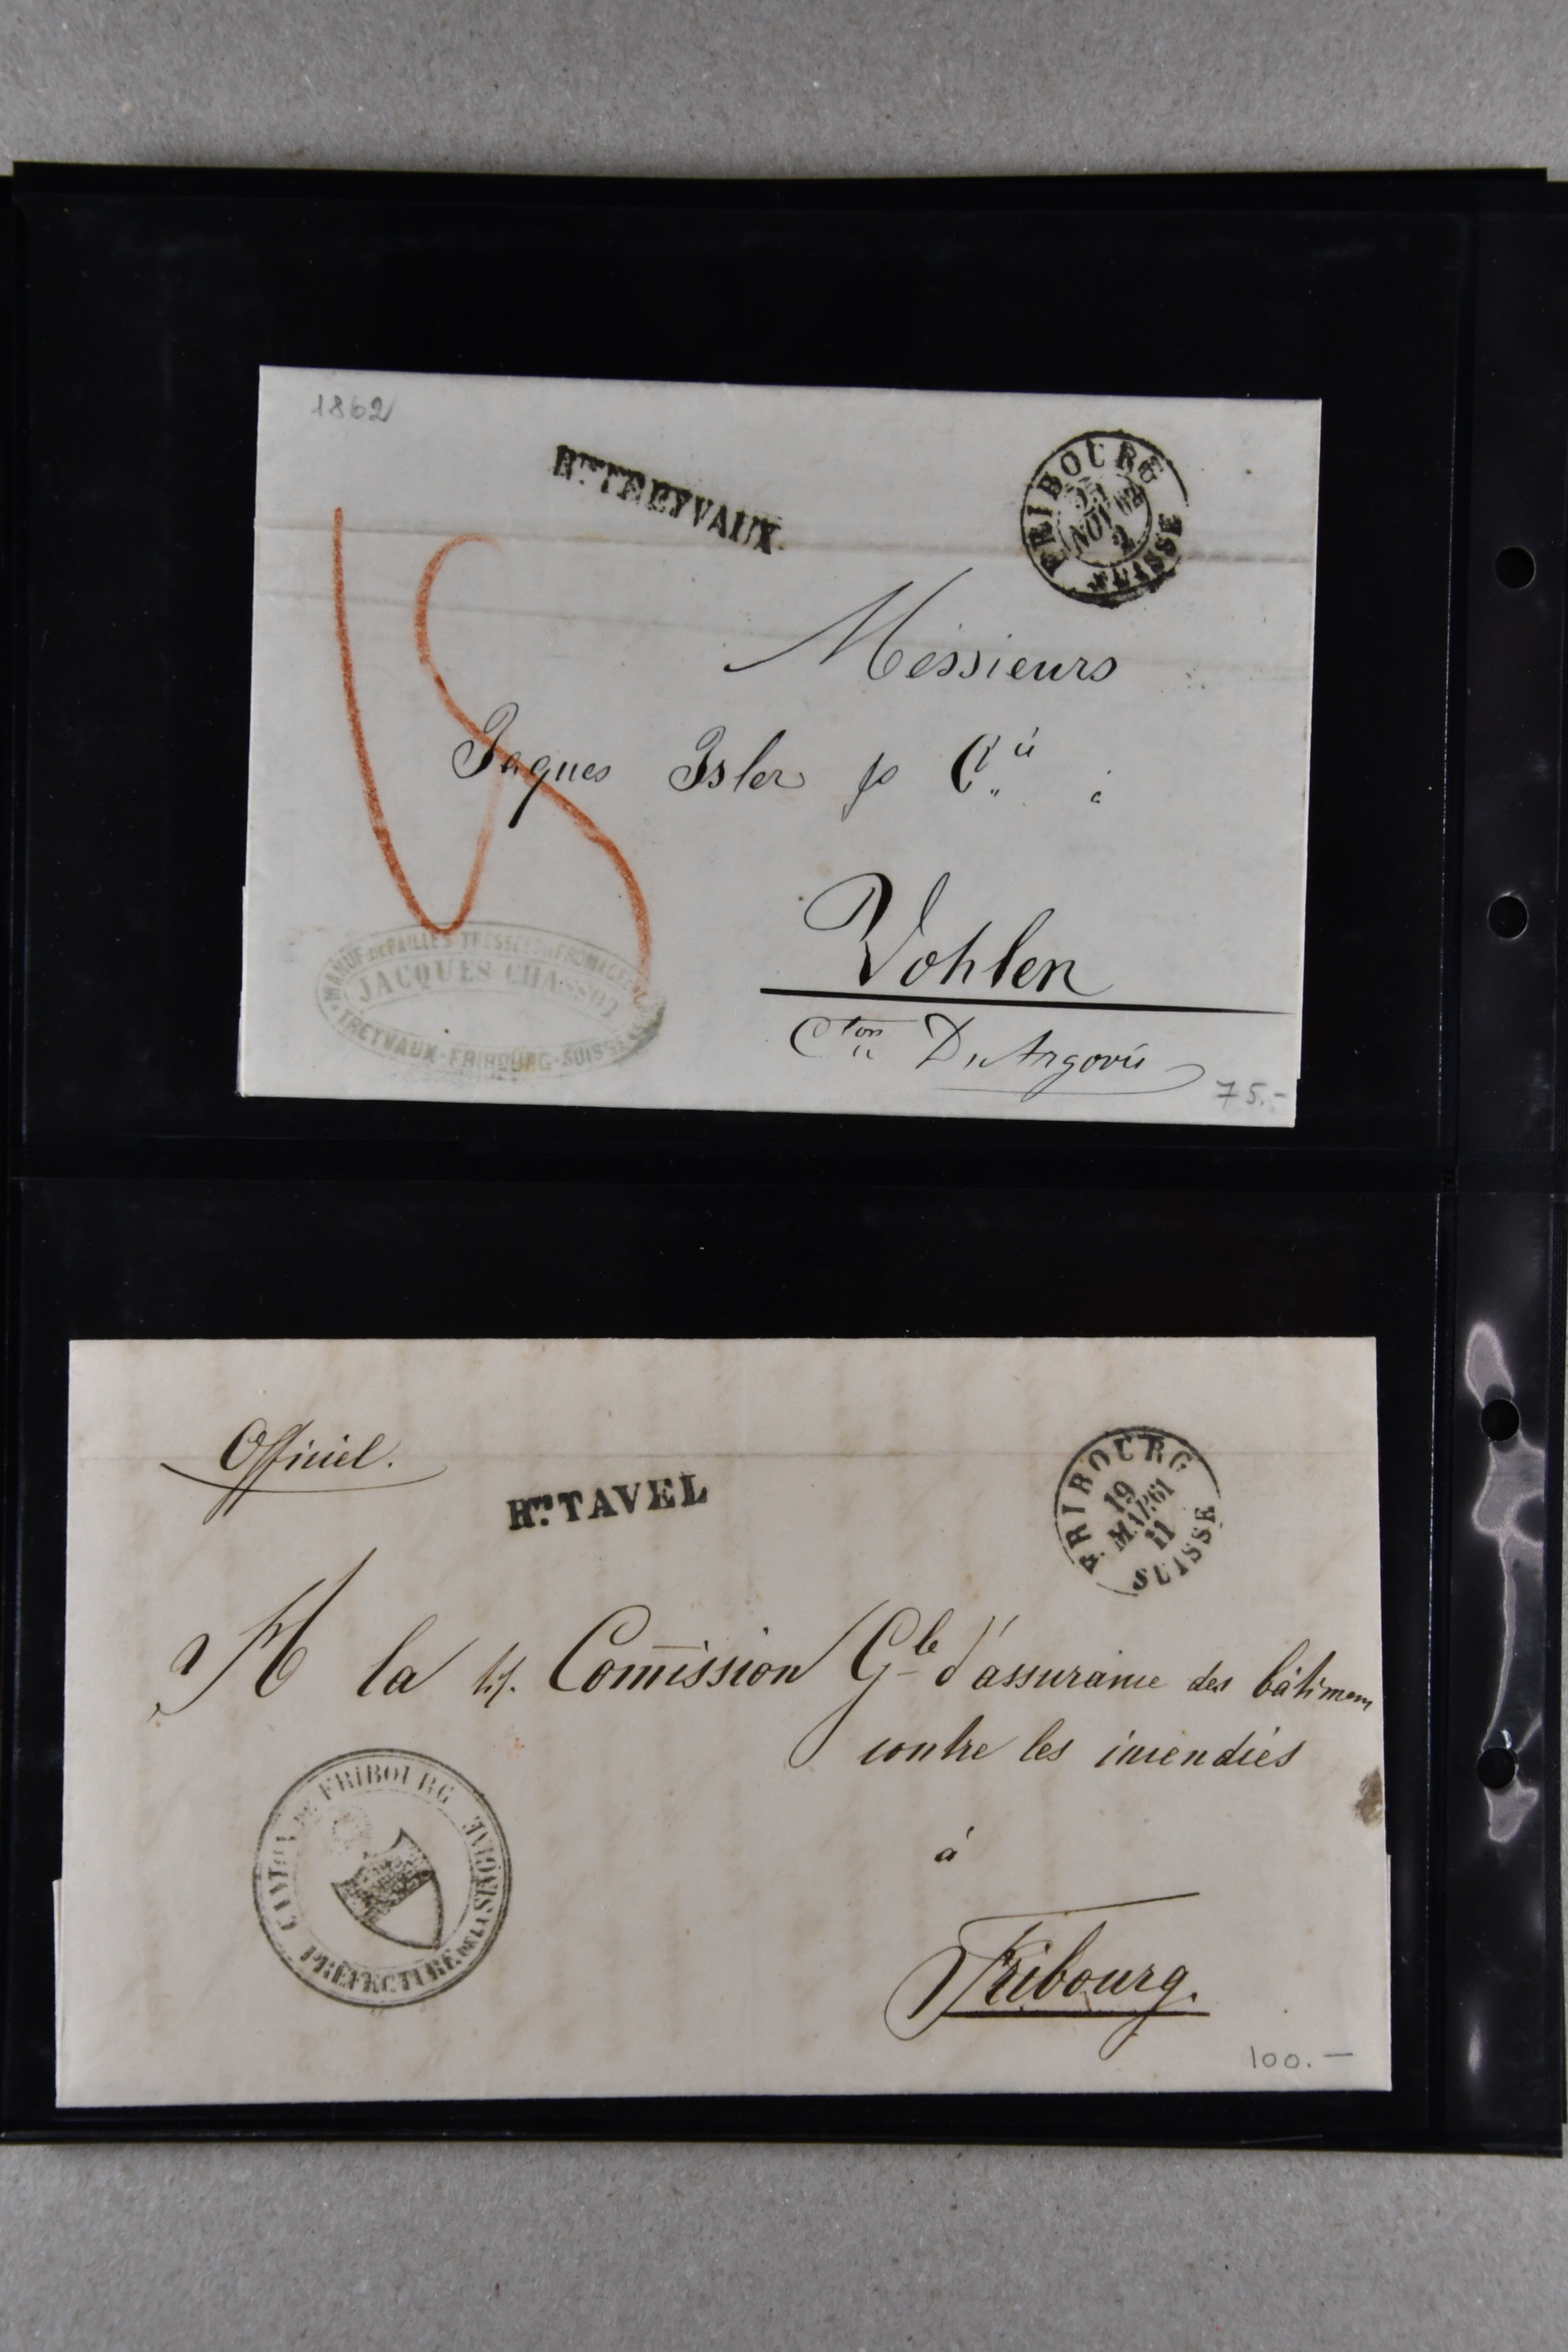 1862
Rau TREYVAUX
FRIBOURG
NOV 62
2
SUISSE
15
Messieurs
Jaques Isler & Cie
à
Vohlen
Cton D'Argovie
MANUF. DE PAILLES TRESSEES FROMAGES
JACQUES CHASSOT
TREYVAUX-FRIBOURG-SUISSE
75.-
Officiel.
Rau TAVEL
FRIBOURG
19
MAR 61
11
SUISSE
A la h. Commission Gle d'assurance des bâtimens
contre les incendies
à
Fribourg.
CANTON DE FRIBOURG
PRÉFECTURE DE LA SINGINE
100.-